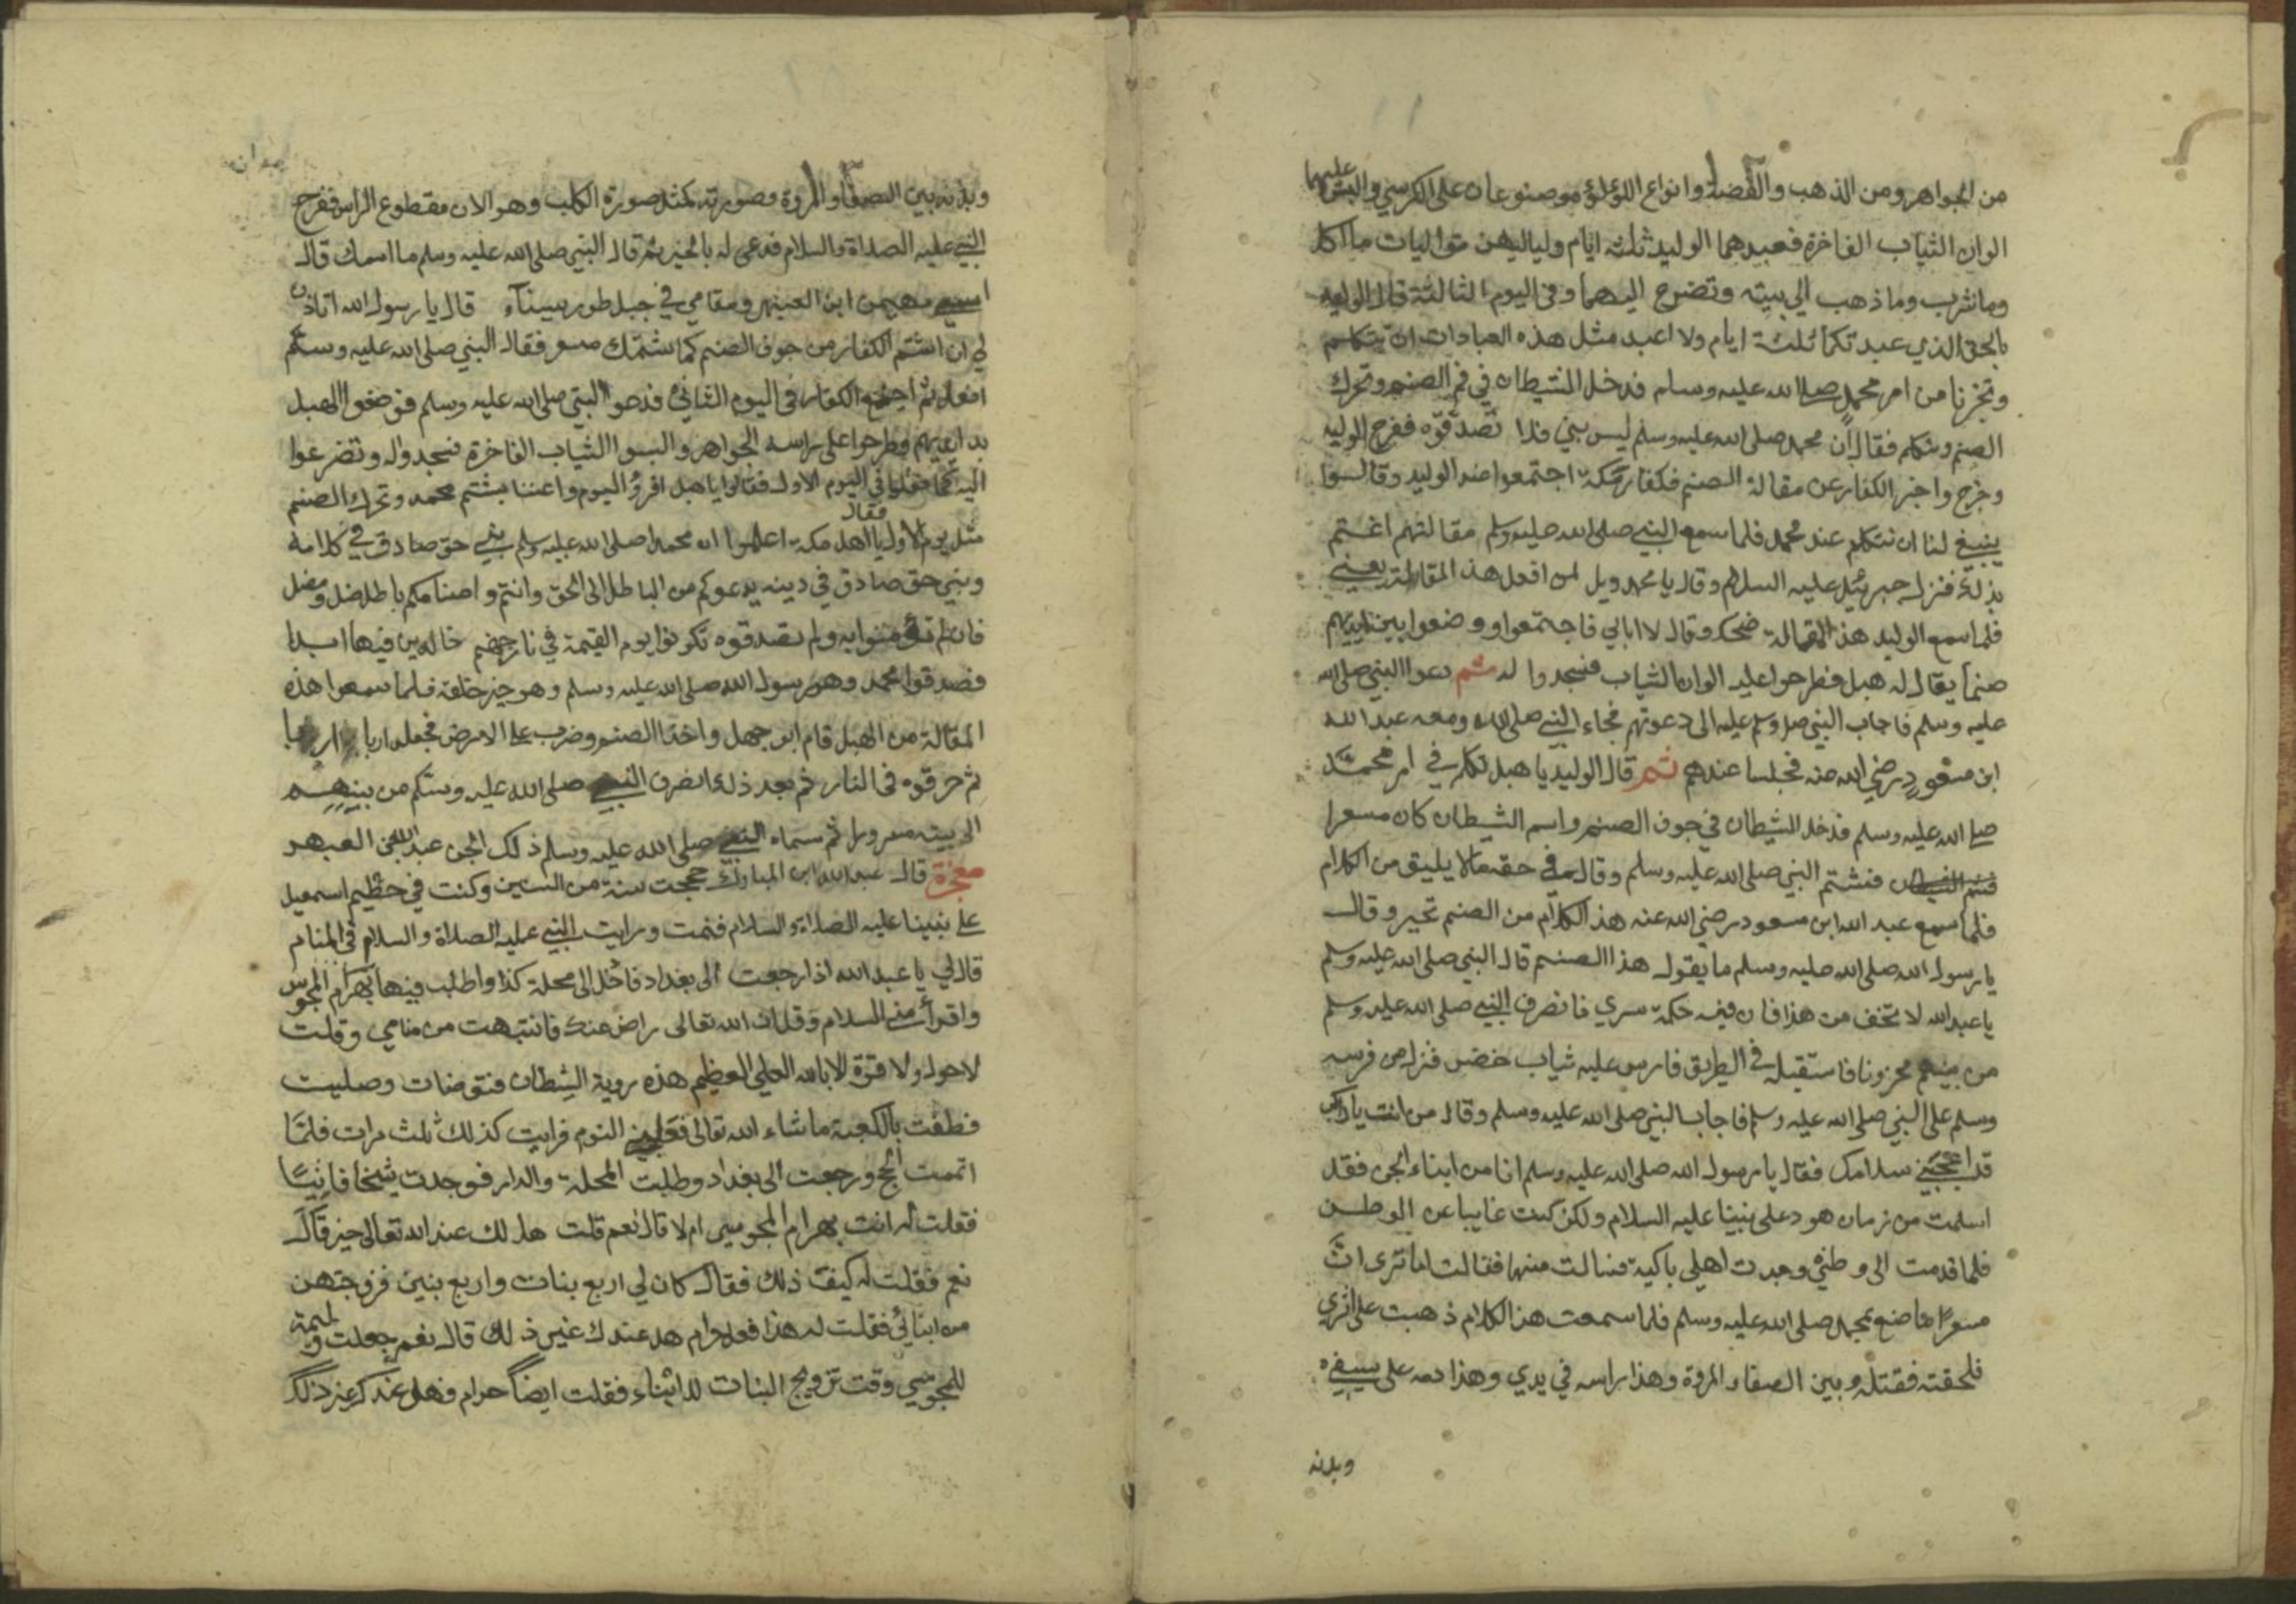 من الجواهر ومن الذهب والفضة وانواع اللؤلؤ موصنوعان على الكرسي والبسوا عليهما
الوان الثياب الفاخرة فعبدهما الوليد ثلثة ايام ولياليهن متواليات ما اكل
وما شرب وما ذهب الى بيته وتضرع اليهما وفى اليوم الثالثة قال الوليد
بالحق الذي عبدتكما ثلثة ايام ولا اعبد مثل هذه العبادات ان تتكلم
وتخبرنا من امر محمد صلى الله عليه وسلم فدخل الشيطان في فم الصنم وتحرك
الصنم وتكلم فقال ان محمد صلى الله عليه وسلم ليس بنبي فلا تصدقوه ففرح الوليد
وخرج واخبر الكفار عن مقالة الصنم فكفار مكة اجتمعوا عند الوليد وقالوا
ينبغي لنا ان نتكلم عند محمد فلما سمع النبي صلى الله عليه وسلم مقالتهم اغتم
بذلك فنزل جبرئيل عليه السلام وقال يا محمد ويل لمن افعل هذ المقالة يعني
فلما سمع الوليد هذ المقالة ضحك وقال لا ابالي فاجتمعوا ووضعوا بين ايديهم
صنما يقال له هبل فطرحوا عليه الوان الثياب فسجدوا له ثم دعوا النبي صلى الله
عليه وسلم فاجاب النبي صلى وسلم عليه الى دعوتهم فجاء النبي صلى الله ومعه عبد الله
ابن مسعود رضي الله عنه فجلسا عندهم ثم قال الوليد يا هبل تكلم في امر محمد
صلى الله عليه وسلم فدخل الشيطان في جوف الصنم واسم الشيطان كان مسعرا
فشتم النبي صلى الله عليه وسلم وقال في حقه مالا يليق من الكلام
فلما سمع عبد الله ابن مسعود رضي الله عنه هذ الكلام من الصنم تحير وقال
يا رسول الله صلى الله عليه وسلم ما يقول هذا الصنم قال النبي صلى الله عليه وسلم
يا عبد الله لا تخف من هذا فان فيه حكمة سري فانصرف النبي صلى الله عليه وسلم
من بينهم محزونا فاستقبله في الطريق فارس عليه ثياب خضر فنزل من فرسه
وسلم على النبي صلى الله عليه وسلم فاجاب النبي صلى الله عليه وسلم وقال من انت يا راكب
قد اعجبني سلامك فقال يا رسول الله صلى الله عليه وسلم انا من ابناء الجن فقد
اسلمت من زمان هود على نبينا عليه السلام ولكن كنت غايبا عن الوطن
فلما قدمت الى وطني وجدت اهلي باكية فسالت منها فقالت اما ترى ان
مسعرا ما صنع بمحمد صلى الله عليه وسلم فلما سمعت هذا الكلام ذهبت على اثري
فلحقته فقتله وبين الصفاء المروة وهذا راسه في يدي وهذا دمه على سيفي
وبدنه
وبدنه بين الصفا والمروة وصورته كمثل صورة الكلب وهو الان مقطوع الراس ففرح
النبي عليه الصلاة والسلام فدعى له بالخير ثم قال النبي صلى الله عليه وسلم ما اسمك قال
اسمي مهيمن ابن العيهر ومقامي في جبل طور سيناء قال يا رسول الله اتاذن
لي ان اشتم الكفار من جوف الصنم كما شتمك مسعر فقال النبي صلى الله عليه وسلم
افعل ثم اجتمع الكفار فى اليوم الثاني فدعوا النبي صلى الله عليه وسلم فوضعوا الهبل
بد ايديهم وطرحوا على راسه الجواهر والبسوا الثياب الفاخرة فسجدوا له وتضرعوا
اليه كما فعلوا في اليوم الاول فقالوا يا هبل اليوم واعننا بشتم محمد وتحرك الصنم
مثل يوم الاول فقال يا اهل مكة اعلموا ان محمد صلى الله عليه وسلم نبي حق صادق في كلامه
ونبي حق صادق في دينه يدعوكم من الباطل الى الحق وانتم واصنامكم باطل ضل ومضل
فان لم تؤمنوا به ولم تصدقوه تكونوا يوم القيمة في نار جهنم خالدين فيها ابدا
فصدقوا محمد وهو رسول الله صلى الله عليه وسلم وهو خير خلقه فلما سمعوا هذه
المقالة من الهبل قام ابو جهل واخذ الصنم وضرب على الارض فجعله اربا اربا
ثم حرقوه فى النار ثم بعد ذلك انصرف النبي صلى الله عليه وسلم من بينهم
الى بيته مسرورا ثم سماه النبي صلى الله عليه وسلم ذلك الجن عبد الله بن العيهر
معجزة قال عبد الله ابن المبارك حججت سنة من السنين وكنت في حطيم اسمعيل
على نبينا عليه الصلاة والسلام فنمت ورايت النبي عليه الصلاة والسلام في المنام
قال لي يا عبد الله اذا رجعت الى بغداد فادخل الى محلة كذا واطلب فيها بهرام المجوس
واقرأ مني السلام وقل ان الله تعالى راض عنك فانتبهت من منامي وقلت
لا حول ولا قوة الا بالله العلي العظيم هذه روية الشيطان فتوضات وصليت
فطفت بالكعبة ما شاء الله تعالى فغلبني النوم فرايت كذلك ثلث مرات فلما
اتممت الحج ورجعت الى بغداد وطلبت المحلة والدار فوجدت شيخا فانيا
فقلت له انت بهرام المجوسي ام لا قال نعم قلت هل لك عند الله تعالى خير قال
نعم فقلت له كيف ذلك فقال كان لي اربع بنات واربع بنين فزوجتهن
من ابنائي فقلت له هذا فعل حرام هل عندك غير ذلك قال نعم جعلت وليمة
للمجوسي وقت تزويج البنات للابناء فقلت ايضا حرام فهل عندك غير ذلك